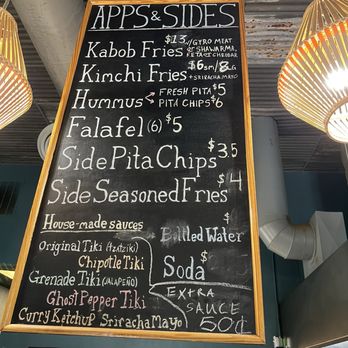 APPS & SIDES
Kabob Fries $13 w/GYRO MEAT
or SHAWARMA,
FETA or CHEDDAR
Kimchi Fries $6 SM/8 LG
+SRIRACHA MAYO
Hummus FRESH PITA $5
PITA CHIPS $6
Falafel (6) $5
Side Pita Chips $3.5
Side Seasoned Fries $4
House-made sauces
Original Tiki (tzatziki)
Chipotle Tiki
Grenade Tiki (JALAPEÑO)
Ghost Pepper Tiki
Curry Ketchup Sriracha Mayo
Bottled Water $
Soda $
EXTRA
SAUCE
50¢